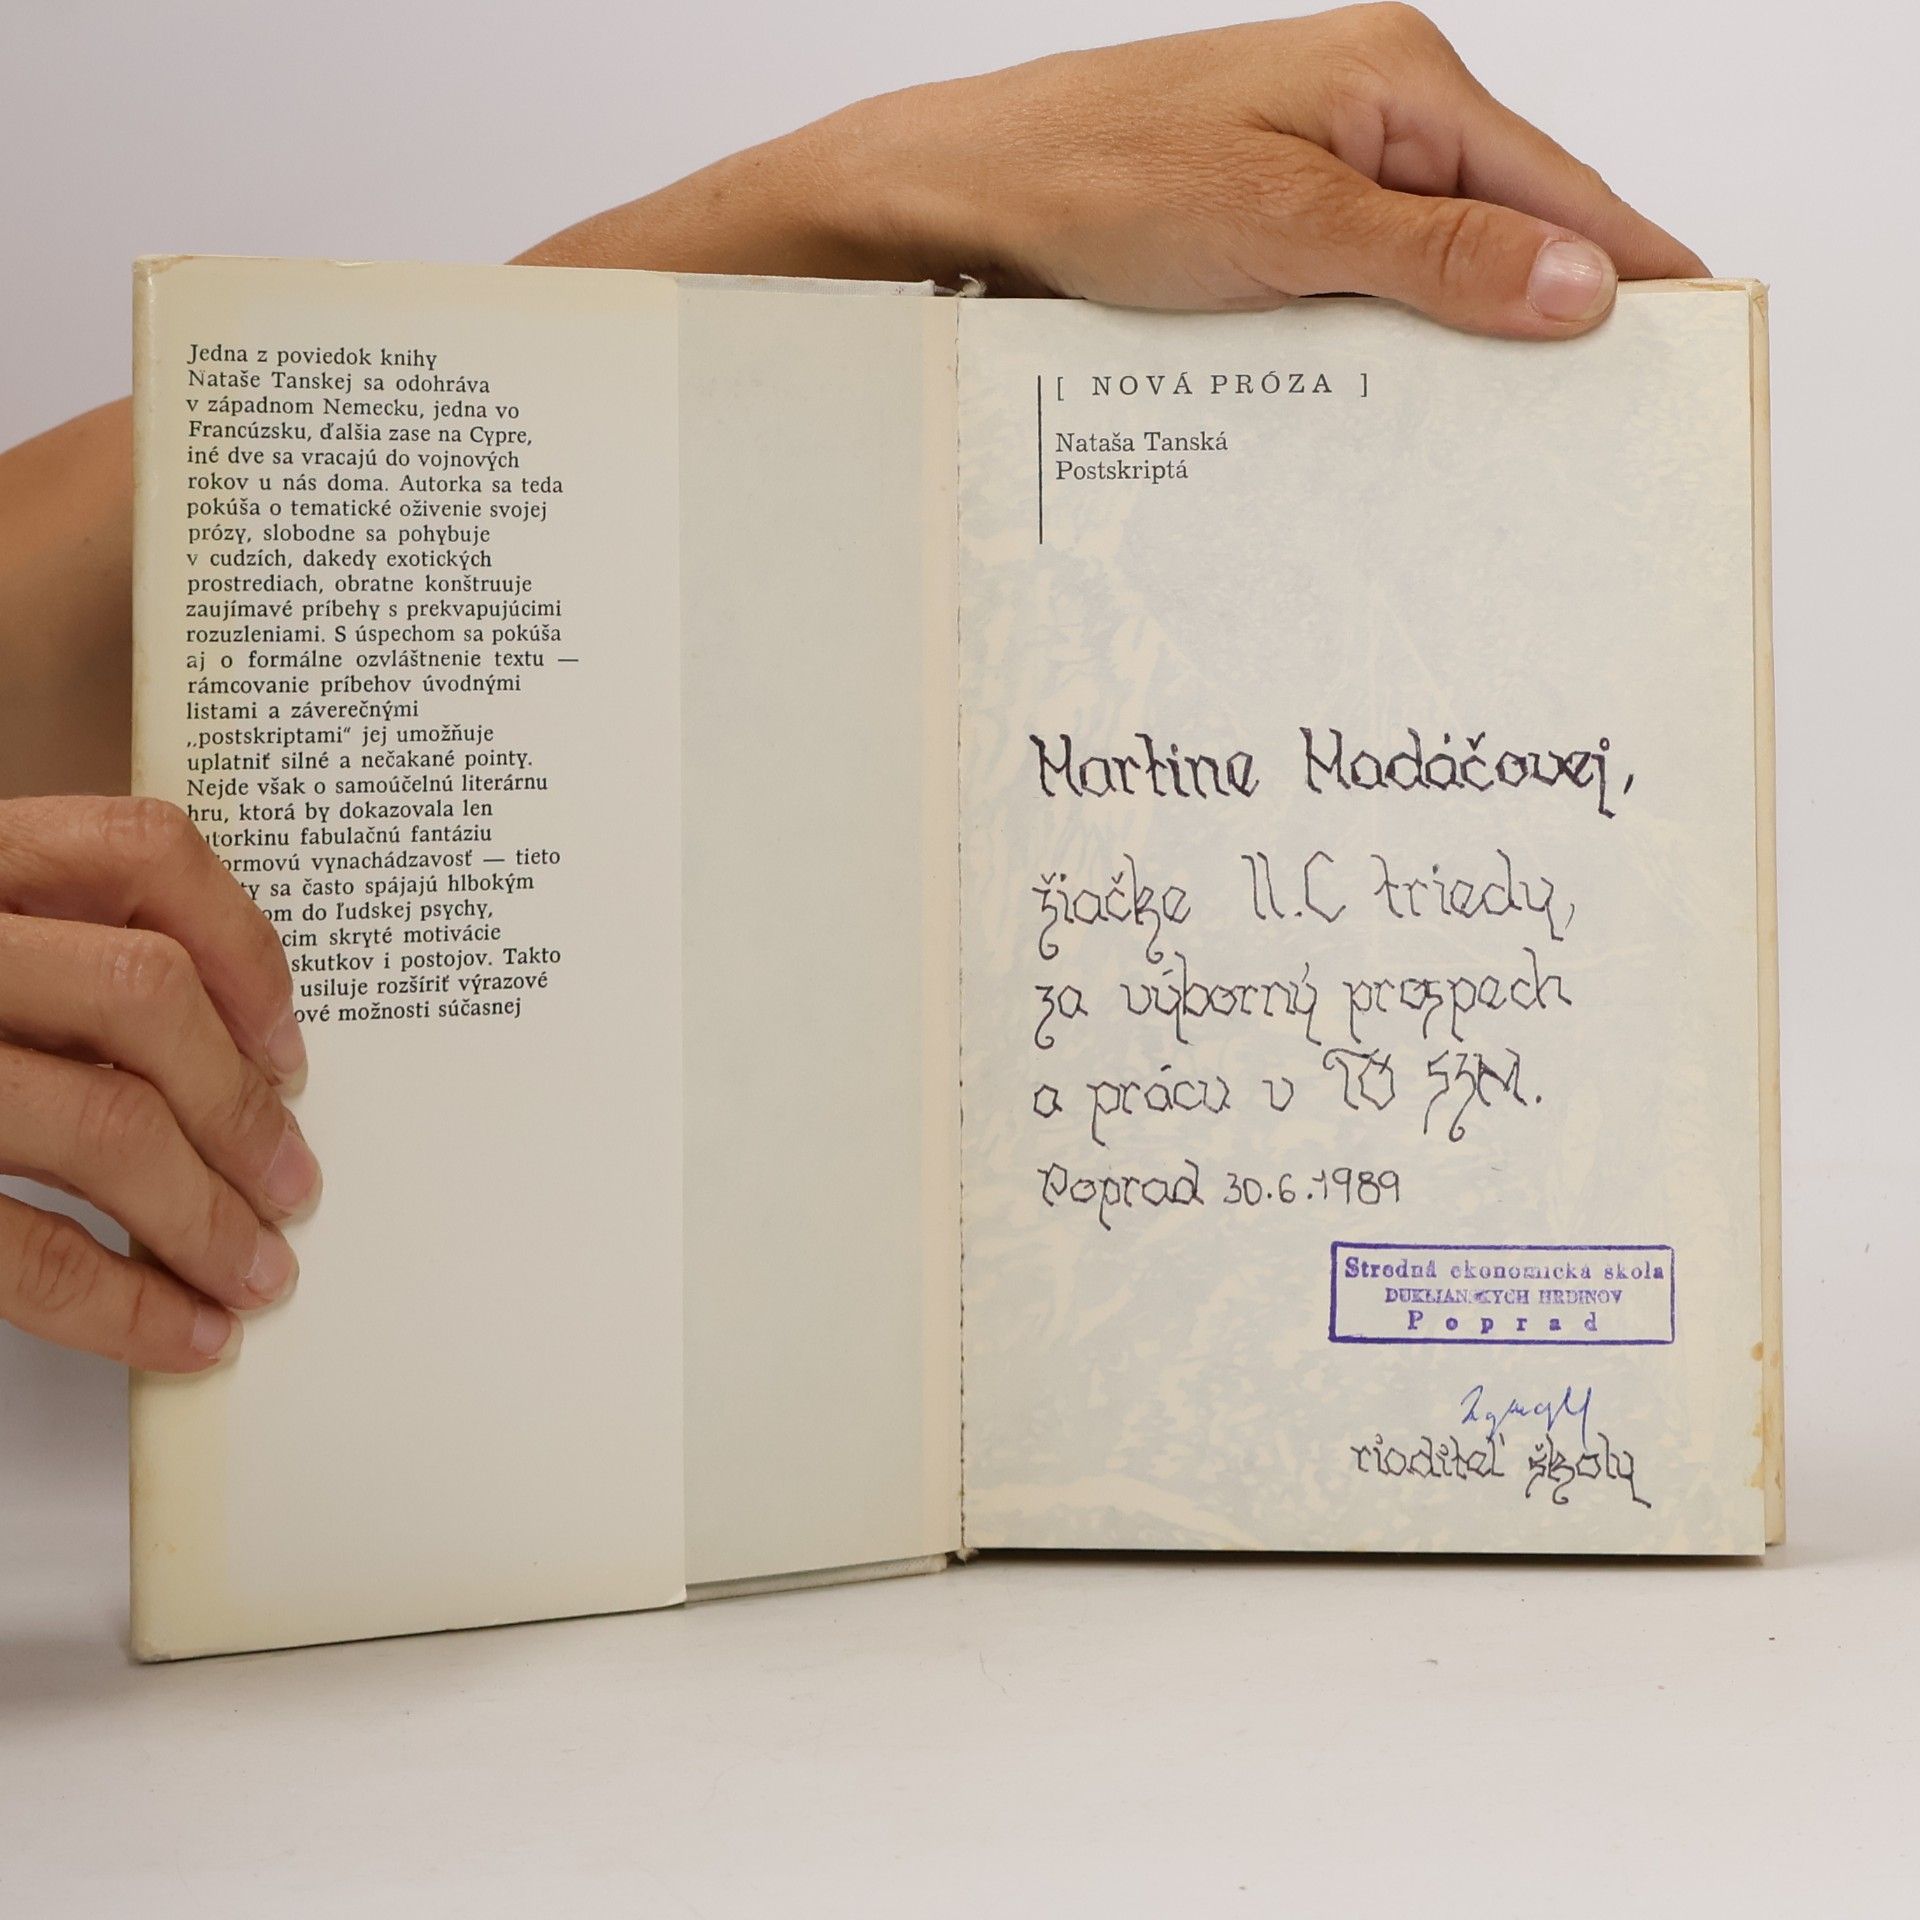 Jedna z poviedok knihy
Nataše Tanskej sa odohráva
v západnom Nemecku, jedna vo
Francúzsku, ďalšia zase na Cypre,
iné dve sa vracajú do vojnových
rokov u nás doma. Autorka sa teda
pokúša o tematické oživenie svojej
prózy, slobodne sa pohybuje
v cudzích, dakedy exotických
prostrediach, obratne konštruuje
zaujímavé príbehy s prekvapujúcimi
rozuzleniami. S úspechom sa pokúša
aj o formálne ozvláštnenie textu —
rámcovanie príbehov úvodnými
listami a záverečnými
„postskriptami“ jej umožňuje
uplatniť silné a nečakané pointy.
Nejde však o samoúčelnú literárnu
hru, ktorá by dokazovala len
utorkinu fabulačnú fantáziu
ormovú vynachádzavosť — tieto
ty sa často spájajú hlbokým
om do ľudskej psychy,
cim skryté motivácie
skutkov i postojov. Takto
usiluje rozšíriť výrazové
ové možnosti súčasnej
[ NOVÁ PRÓZA ]
Nataša Tanská
Postskriptá
Martine Madáčovej,
žiačke II.C triedy,
za výborný prospech
a prácu v TO SZM.
Poprad 30.6.1989
Stredná ekonomická škola
DUKLIANSKYCH HRDINOV
Poprad
riaditeľ školy